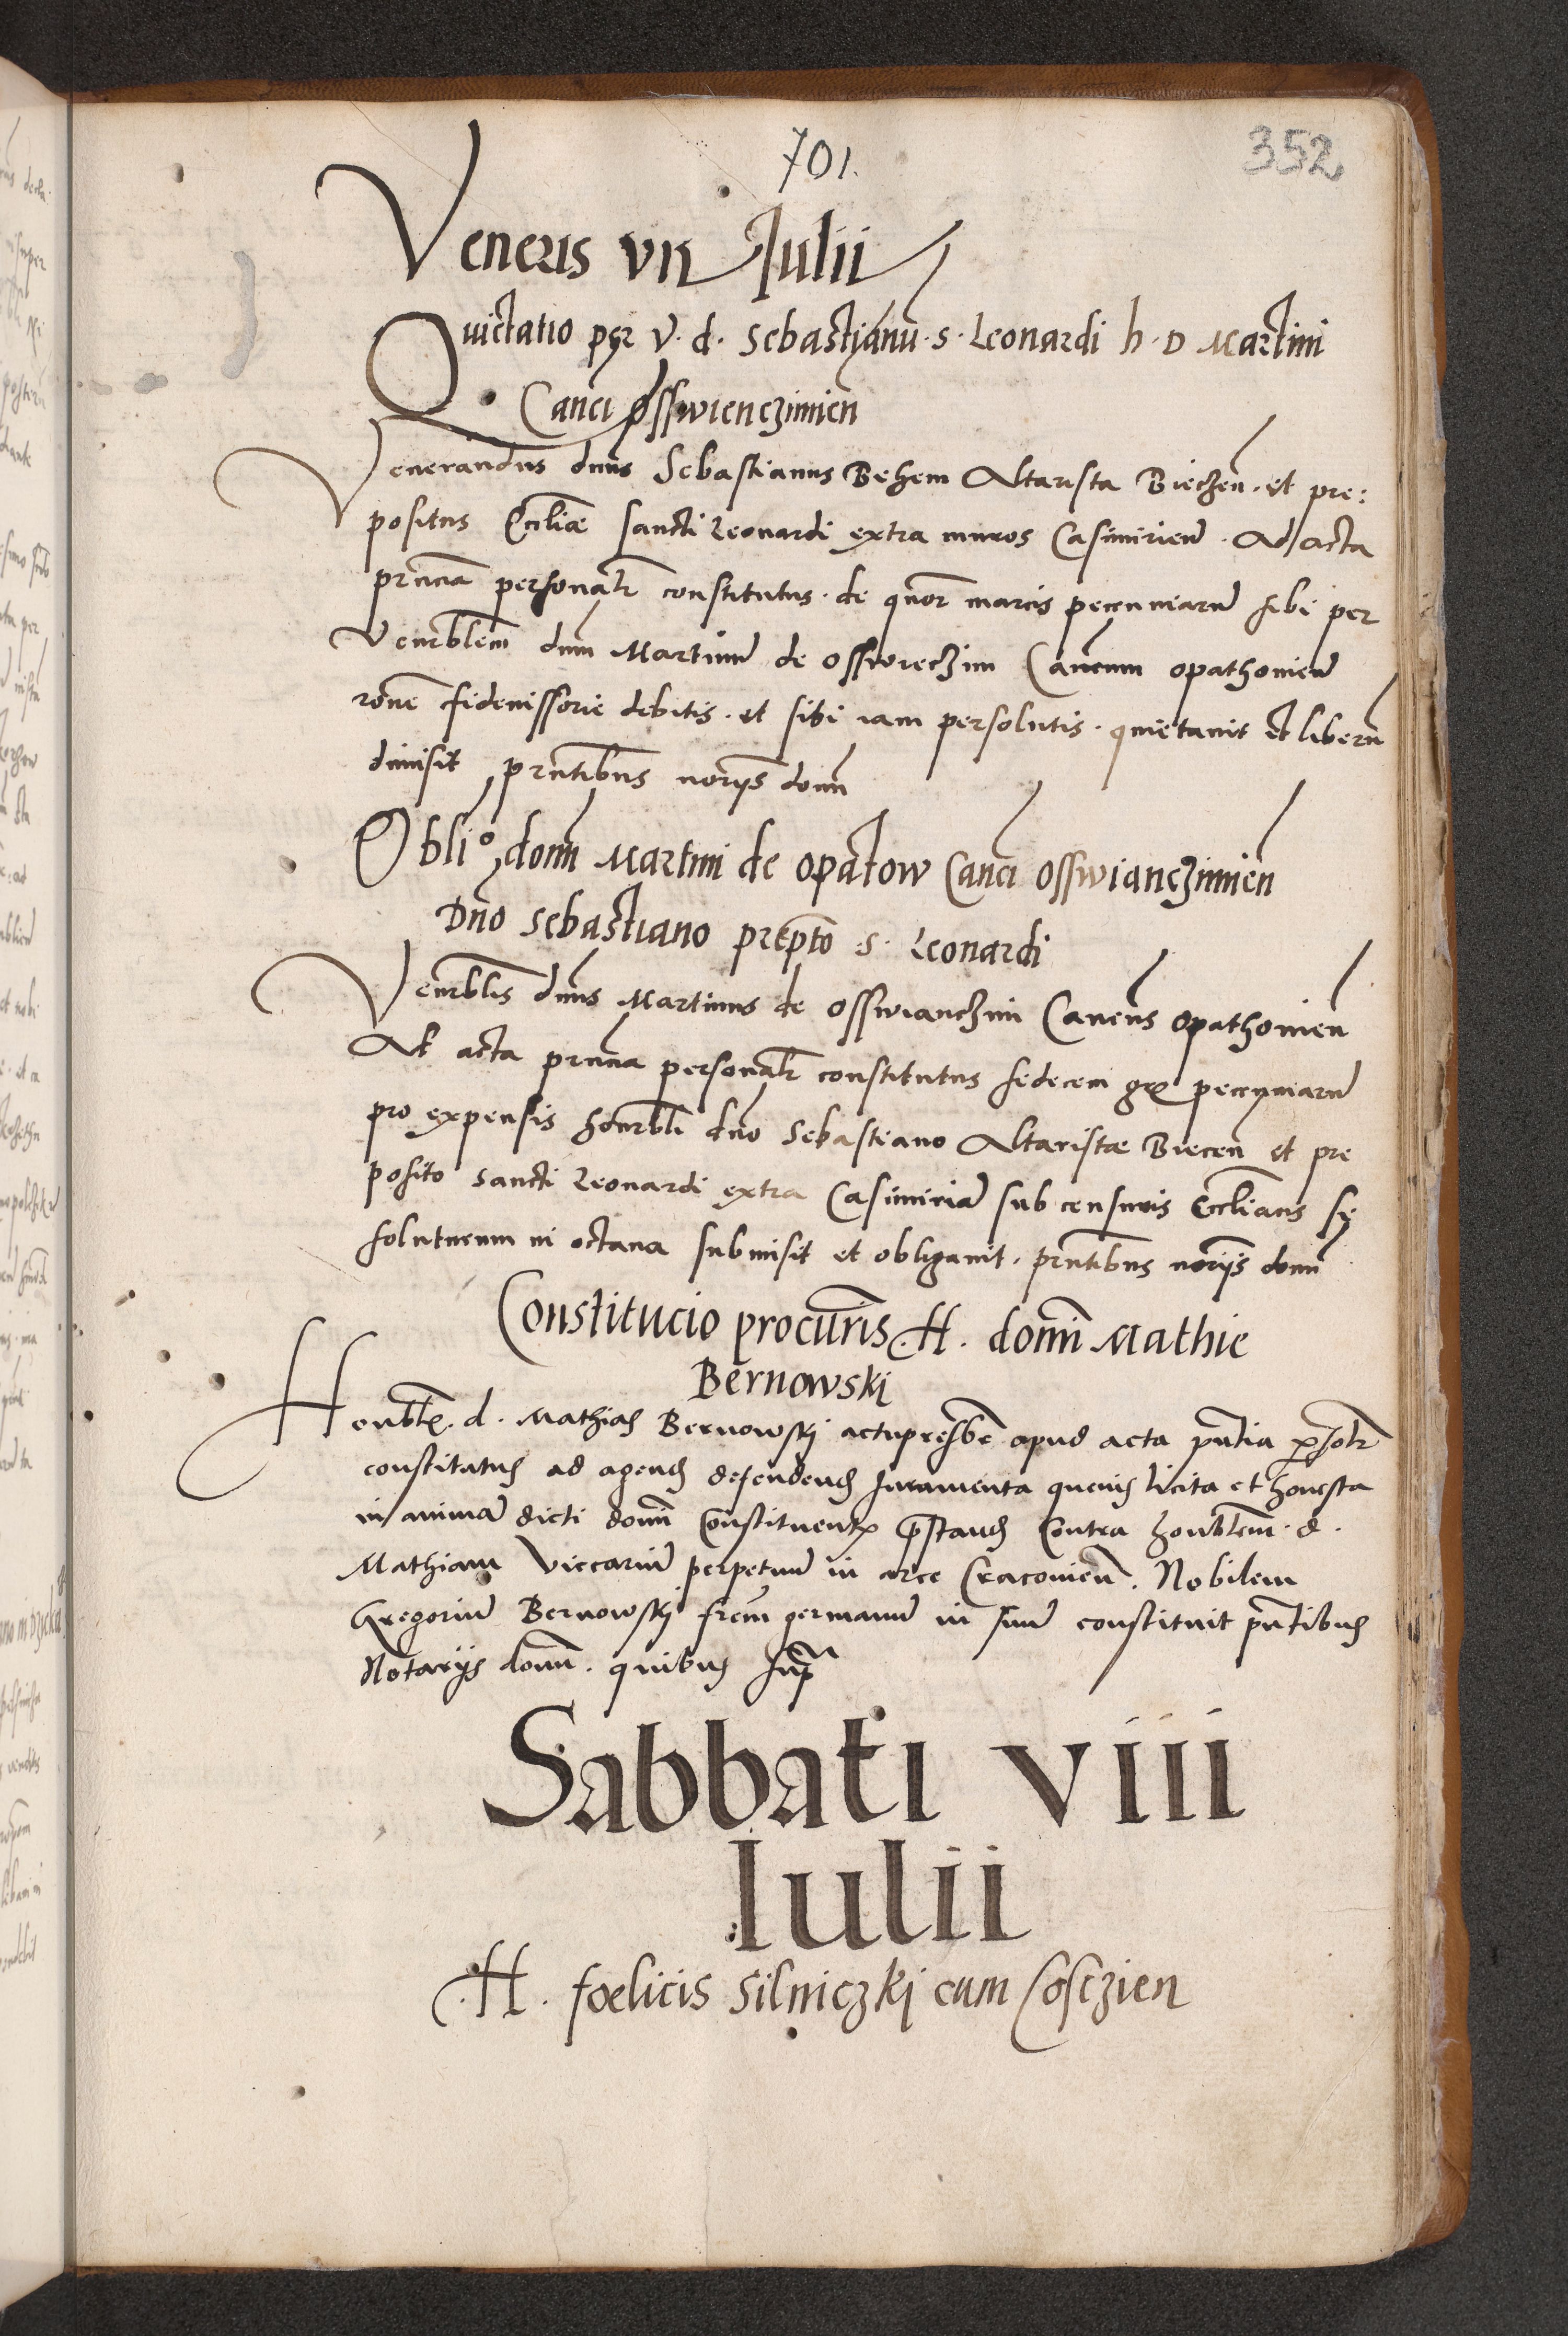 701.
352
Veneris VII Julii
Quictatio per V. d. Sebastianū. s. Leonardi h. D Martini
Canci Osswienczimien̄
Venerandus dnūs Sebastianus Behem Altarista Biechen̄. et pre:
positus Ecclīæ sancti Leonardi extra muros Casimirien̄. Ad acta
prn̄cia personalr̄ constitutus. de quor̄ marcis pecuniarū sibi per
Venrblēm dnm̄ Martinū de Ossvoieczim Cancum opathonien̄
rōne fideiussorie debitis. et sibi iam persolutis. quietavit et liberū
dimisit prntibūs noriȷ̄s domī
Obliº, domī Martini de opatow Canci Osswianczimien̄
Dnō Sebastiano prepto .s. Leonardi
Venrblīs dnūs Martinus de Osswianczim Cancus Opathonien̄
At acta prn̄cia personalr̄ constitutus sedecem gr pecuniarū
pro expensis honrbli dnō Sebastiano Altaristæ Biecen̄ et pre
posito sancti Leonardi extra Casimiriā sub censuris Ecclīacis
soluturum in octava submisit et obligavit. prntibūs noriȷ̄s domī
Constitucio procurīs .H. domī Mathie
Bernowski
Honblꝭ. d. Mathias Bernowskj actupresbr̄ apud acta pn̄tia
constitutus ad agend defendend Juramenta quevis licita et honesta
in animā dicti domī Constituentꝭ prestand Contra honblēm. d.
Mathiam Viccariū perpetuū in arce Cracovien̄. Nobilem
Gregoriū Bernowskj frēm germanū in suū constituit pn̄tibus
Notarijs domī. quibus sup̄
Sabbati VIII
Iulii
.H. fœlicis Silniczkj cum Cosczien